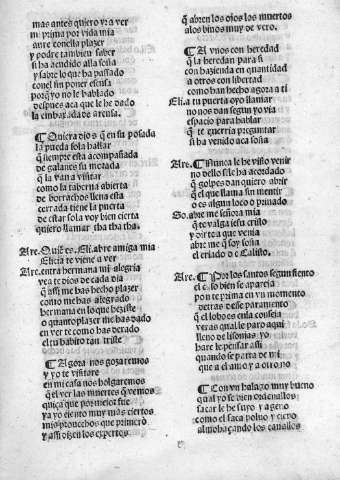 mas antes quiero yr a ver
mi prima por vida mia
aure con ella plazer
y podre tambien saber
si ha acudido alla soña
y sabre lo que ha passado
con el sin poner escusa
porq̃ yo no le hablado
despues aca que le he dado
la embaxada de areusa.
¶ Quiera dios q̃ en su posada
la pueda sola hallar
q̃ siempre esta acompañada
de galanes su morada
que la van a visitar
como la taberna abierta
de borrachos llena esta
cerrada tiene la puerta
de estar sola voy bien cierta
quiero llamar tha tha tha.
Are. Quiẽ es. Eli. abre amiga mia
Elicia te viene a ver
Are. entra hermana mi alegria
vea te dios de cada dia
q̃ assi me has hecho plazer
como me has alegrado
hermana en lo que heziste
o quanto plazer me has dado
en ver te como has derado
el tu habito tan triste
¶ Agora nos gozaremos
y yo te visitare
en mi casa nos holgaremos
q̃ el ver las muertes q̃ vemos
quiça que por mejor fue
ya yo siento muy mas ciertos
mis prouechos que primero
y assi dizen los expertos
q̃ abren los ojos los muertos
a los biuos muy de vero.
¶ A vnos con heredad
q̃ la heredan para si
con hazienda en quantidad
a otros con libertad
como han hecho agora a ti
Eli. a tu puerta oyo llamar
no nos dan segun yo via
espacio para hablar
q̃ te querria preguntar
si ha venido aca soña
Are. ¶ Nunca le he visto venir
no dello se le ha acordado
q̃ golpes dan quiero abrir
q̃ el que llama sin mentir
o es algun loco o priuado
So. abre me señora mia
q̃ te valga jesu cristo
y dirte a que venia
abre me q̃ soy soña
el criado de Calisto.
Are. ¶ Por los santos segun siento
el caso bien se apareja
ponte prima en vn momento
detras desse paramento
q̃ el lobo es en la conseja
veras qual le paro aqui
lleno de lisonjas yo
hare le pensar assi
quando se parta de mi
que a el amo y a otro no
¶ Con vn halago muy bueno
qual yo se bien ordenallos
sacar le he suyo y ageno
como el saca poluo y cieno
almohaçando los cauallos